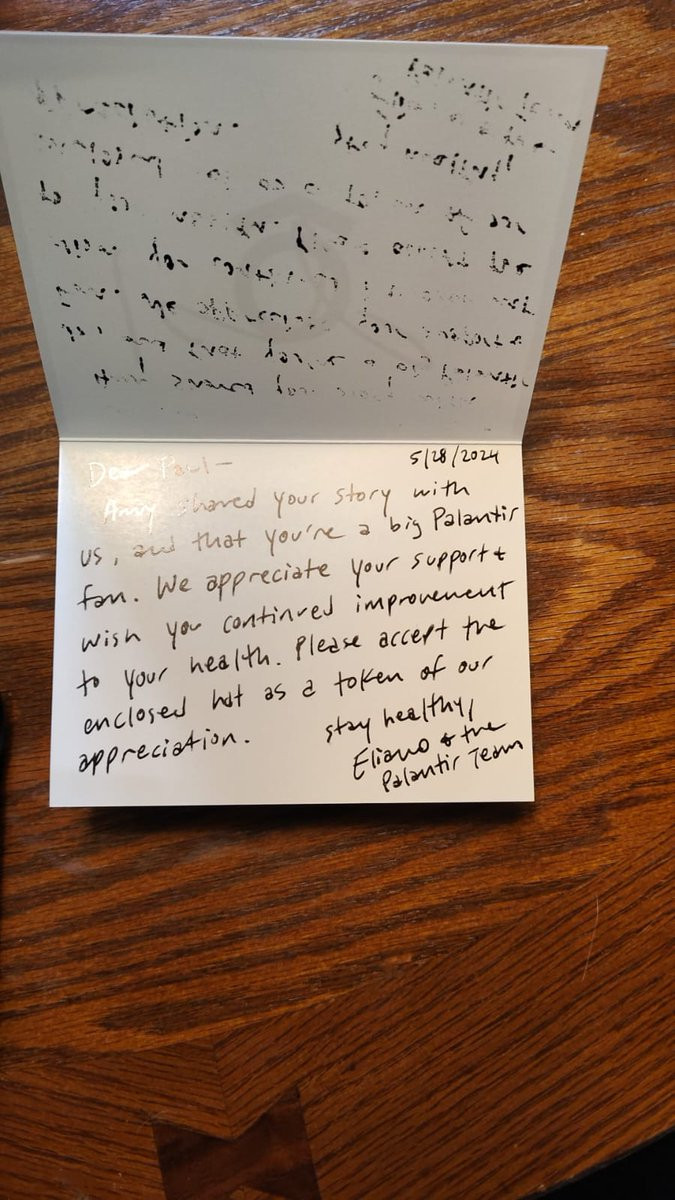 5/28/2024
Dear Paul-
Amy shared your story with
us, and that you're a big Palantir
fan. We appreciate your support &
wish you continued improvement
to your health. Please accept the
enclosed hat as a token of our
appreciation.
stay healthy,
Eliano & the
Palantir Team